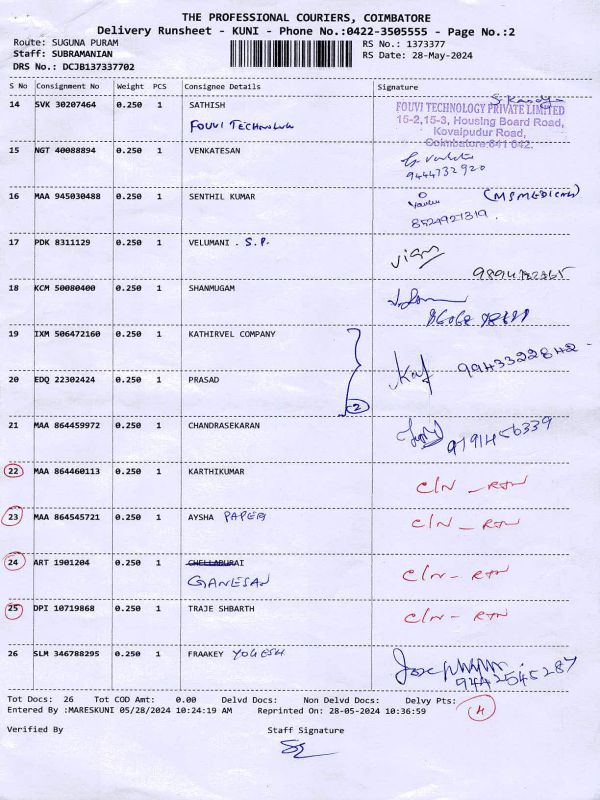 THE PROFESSIONAL COURIERS, COIMBATORE
Delivery Runsheet - KUNI - Phone No.:0422-3505555 - Page No.:2
Route: SUGUNA PURAM RS No.: 1373377
Staff: SUBRAMANIAN RS Date: 28-May-2024
DRS No.: DCJB137337702
S No Consignment No Weight PCS Consignee Details Signature
14 SVK 30207464 0.250 1 SATHISH
FOUVI TECHNOLOGY
FOUVI TECHNOLOGY PRIVATE LIMITED
15-2,15-3, Housing Board Road,
Kovaipudur Road,
Coimbatore-641 042.
15 NGT 40088894 0.250 1 VENKATESAN
9444732920
16 MAA 945030488 0.250 1 SENTHIL KUMAR (MSMEDICALS)
17 PDK 8311129 0.250 1 VELUMANI . S.P.
18 KCM 50080400 0.250 1 SHANMUGAM
19 IXM 506472160 0.250 1 KATHIRVEL COMPANY
9943322842
20 EDQ 22302424 0.250 1 PRASAD
2
21 MAA 864459972 0.250 1 CHANDRASEKARAN
9791456339
22 MAA 864460113 0.250 1 KARTHIKUMAR C/N - RTN
23 MAA 864545721 0.250 1 AYSHA PAPER C/N - RTN
24 ART 1901204 0.250 1 CHELLADURAI C/N - RTN
GANESAN
25 DPI 10719868 0.250 1 TRAJE SHBARTH C/N - RTN
26 SLM 346788295 0.250 1 FRAAKEY YOGESH
9442545287
Tot Docs: 26 Tot COD Amt: 0.00 Delvd Docs: Non Delvd Docs: Delvy Pts:
4
Entered By :MARESKUNI 05/28/2024 10:24:19 AM Reprinted On: 28-05-2024 10:36:59
Verified By Staff Signature